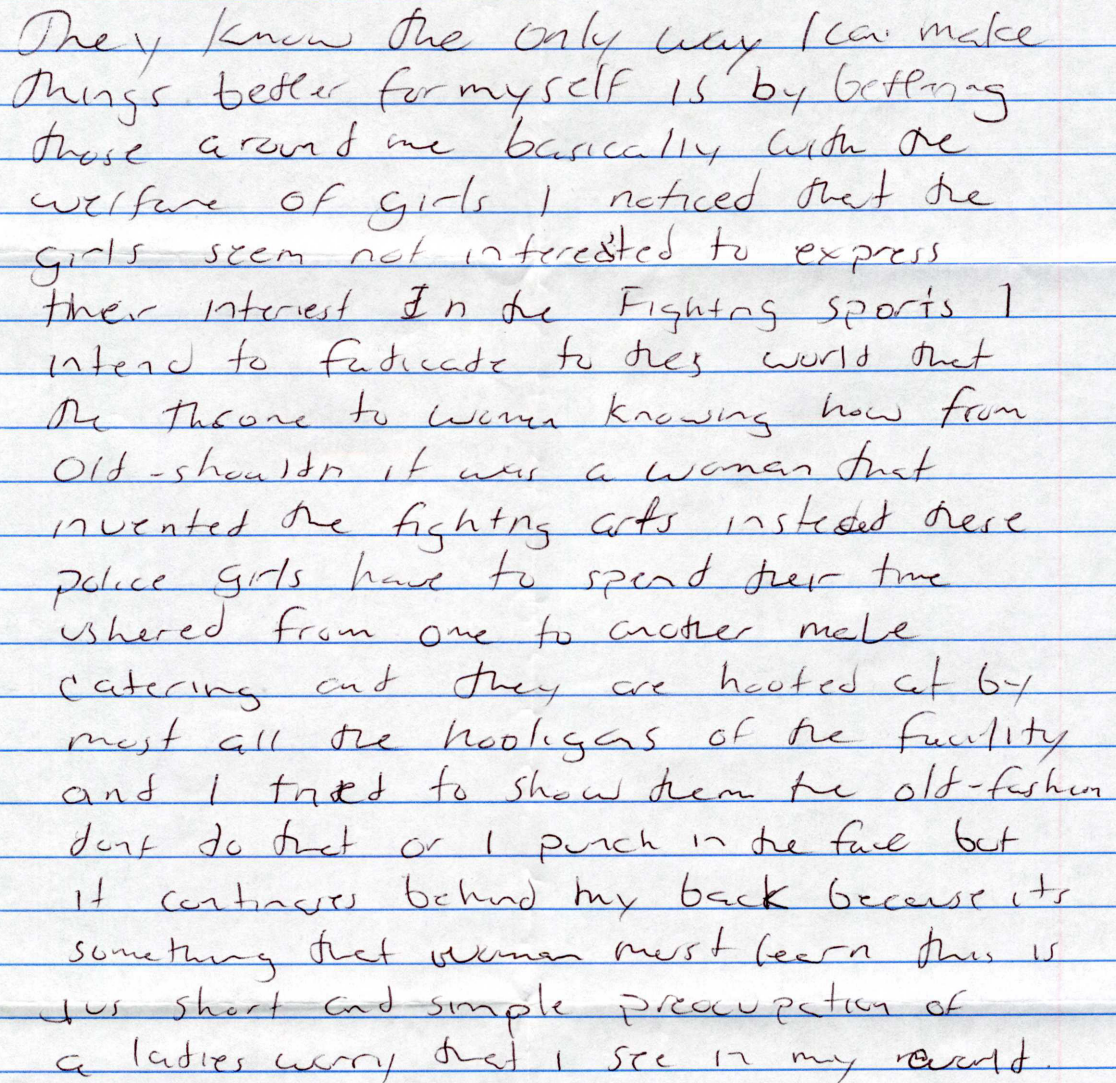 They know the only way I can make
things better for myself is by bettering
those around me basically with the
welfare of girls I noticed that the
girls seem not interested to express
their interest In the Fighting sports I
intend to to this world that
the throne to women knowing how from
old - it was a woman that
invented the fighting arts instead these
police girls have to spend their time
ushered from one to another male
catering and they are hooted at by
most all the hooligas of the facility
and I tried to show them the old-fashion
dont do that or I punch in the face but
it continues behind my back because its
something that woman must learn this is
Jus short and simple preocupation of
a ladies worry that I see in my world.